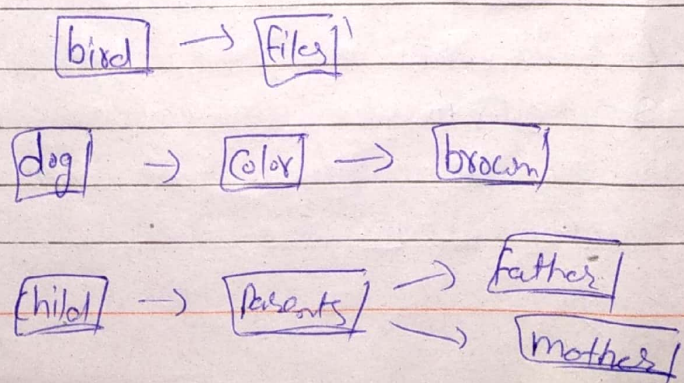 bird → flies
dog → Color → brown
child → Parents → father
→ mother